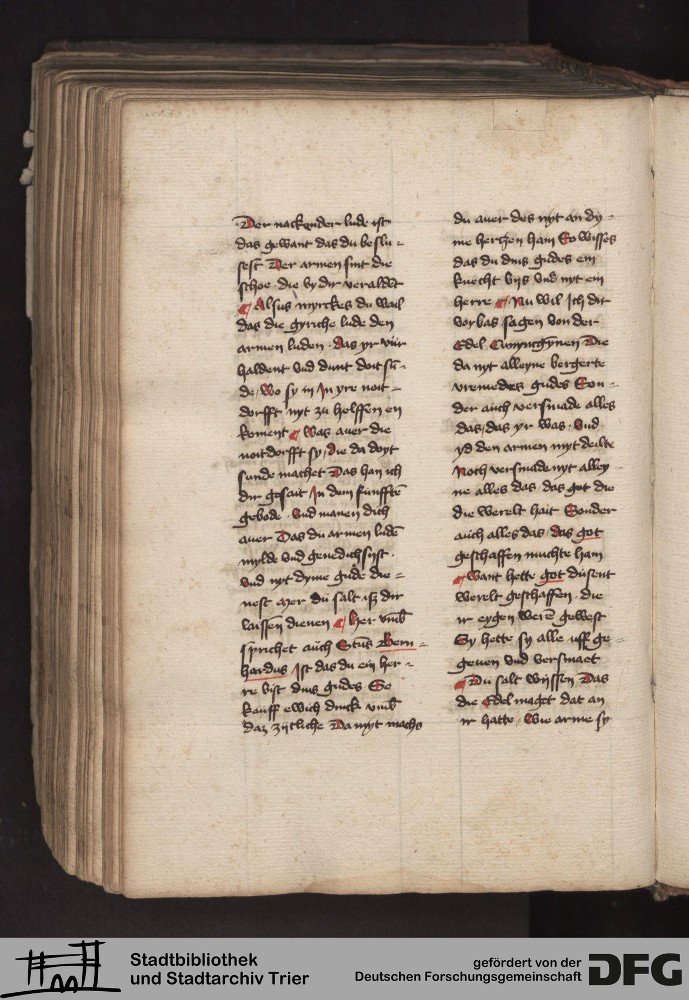 Der nackender lude ist
das gewant das du beslu=
sest Der armen sint die
schoe die by dir veraldet
¶ Alsus myrckes du wail
das die gyriche lude den
armen luden das yr vur
haldent vnd dunt doit sū=
de wo sy in in yre noit=
dorfft nyt zu helffen en
koment ¶ Was auer die
noitdorfft sy die da doyt
sunde machet Das han ich
dir gesait in dem funfftē
gebode Vnd manen dich
auer Das du armen ludē
mylde vnd genedich syst.
vnd nyt dyme gude die=
nest Mer du salt iß dir
laissen dienen ¶ her vmb
sprichet auch Sctus Bern=
hardus Ist das du ein her=
re bist dins gudes So
kauff ewich dinck vmb
daz zijtliche Da nyt machs
du auer des nyt an dy=
me hertzen hain So wisses
das du dins gudes ein
knecht bijs vnd nyt ein
herre ¶ Nu wil ich dir
vorbas sagen von der
Edel Cunyncgynnen Die
da nyt alleyne bergerte
vremedes gudes Son=
der auch versmade alles
das das yr was Vnd
yd den armen myt deilte
Noch versmade nyt alley=
ne alles das das got die
die werelt hait Sonder
auch alles das das got
geschaffen muchte hain
¶ Want hette got dusent
werelt geschaffen die
ir eygen werē gewest
Sy hette sy alle uff ge=
geuen vnd versmaet
¶ Du salt wijssen Das
die Edel maget dat an
ir hatte Wie arme sy
Stadtbibliothek
und Stadtarchiv Trier
gefördert von der
Deutschen Forschungsgemeinschaft
DFG